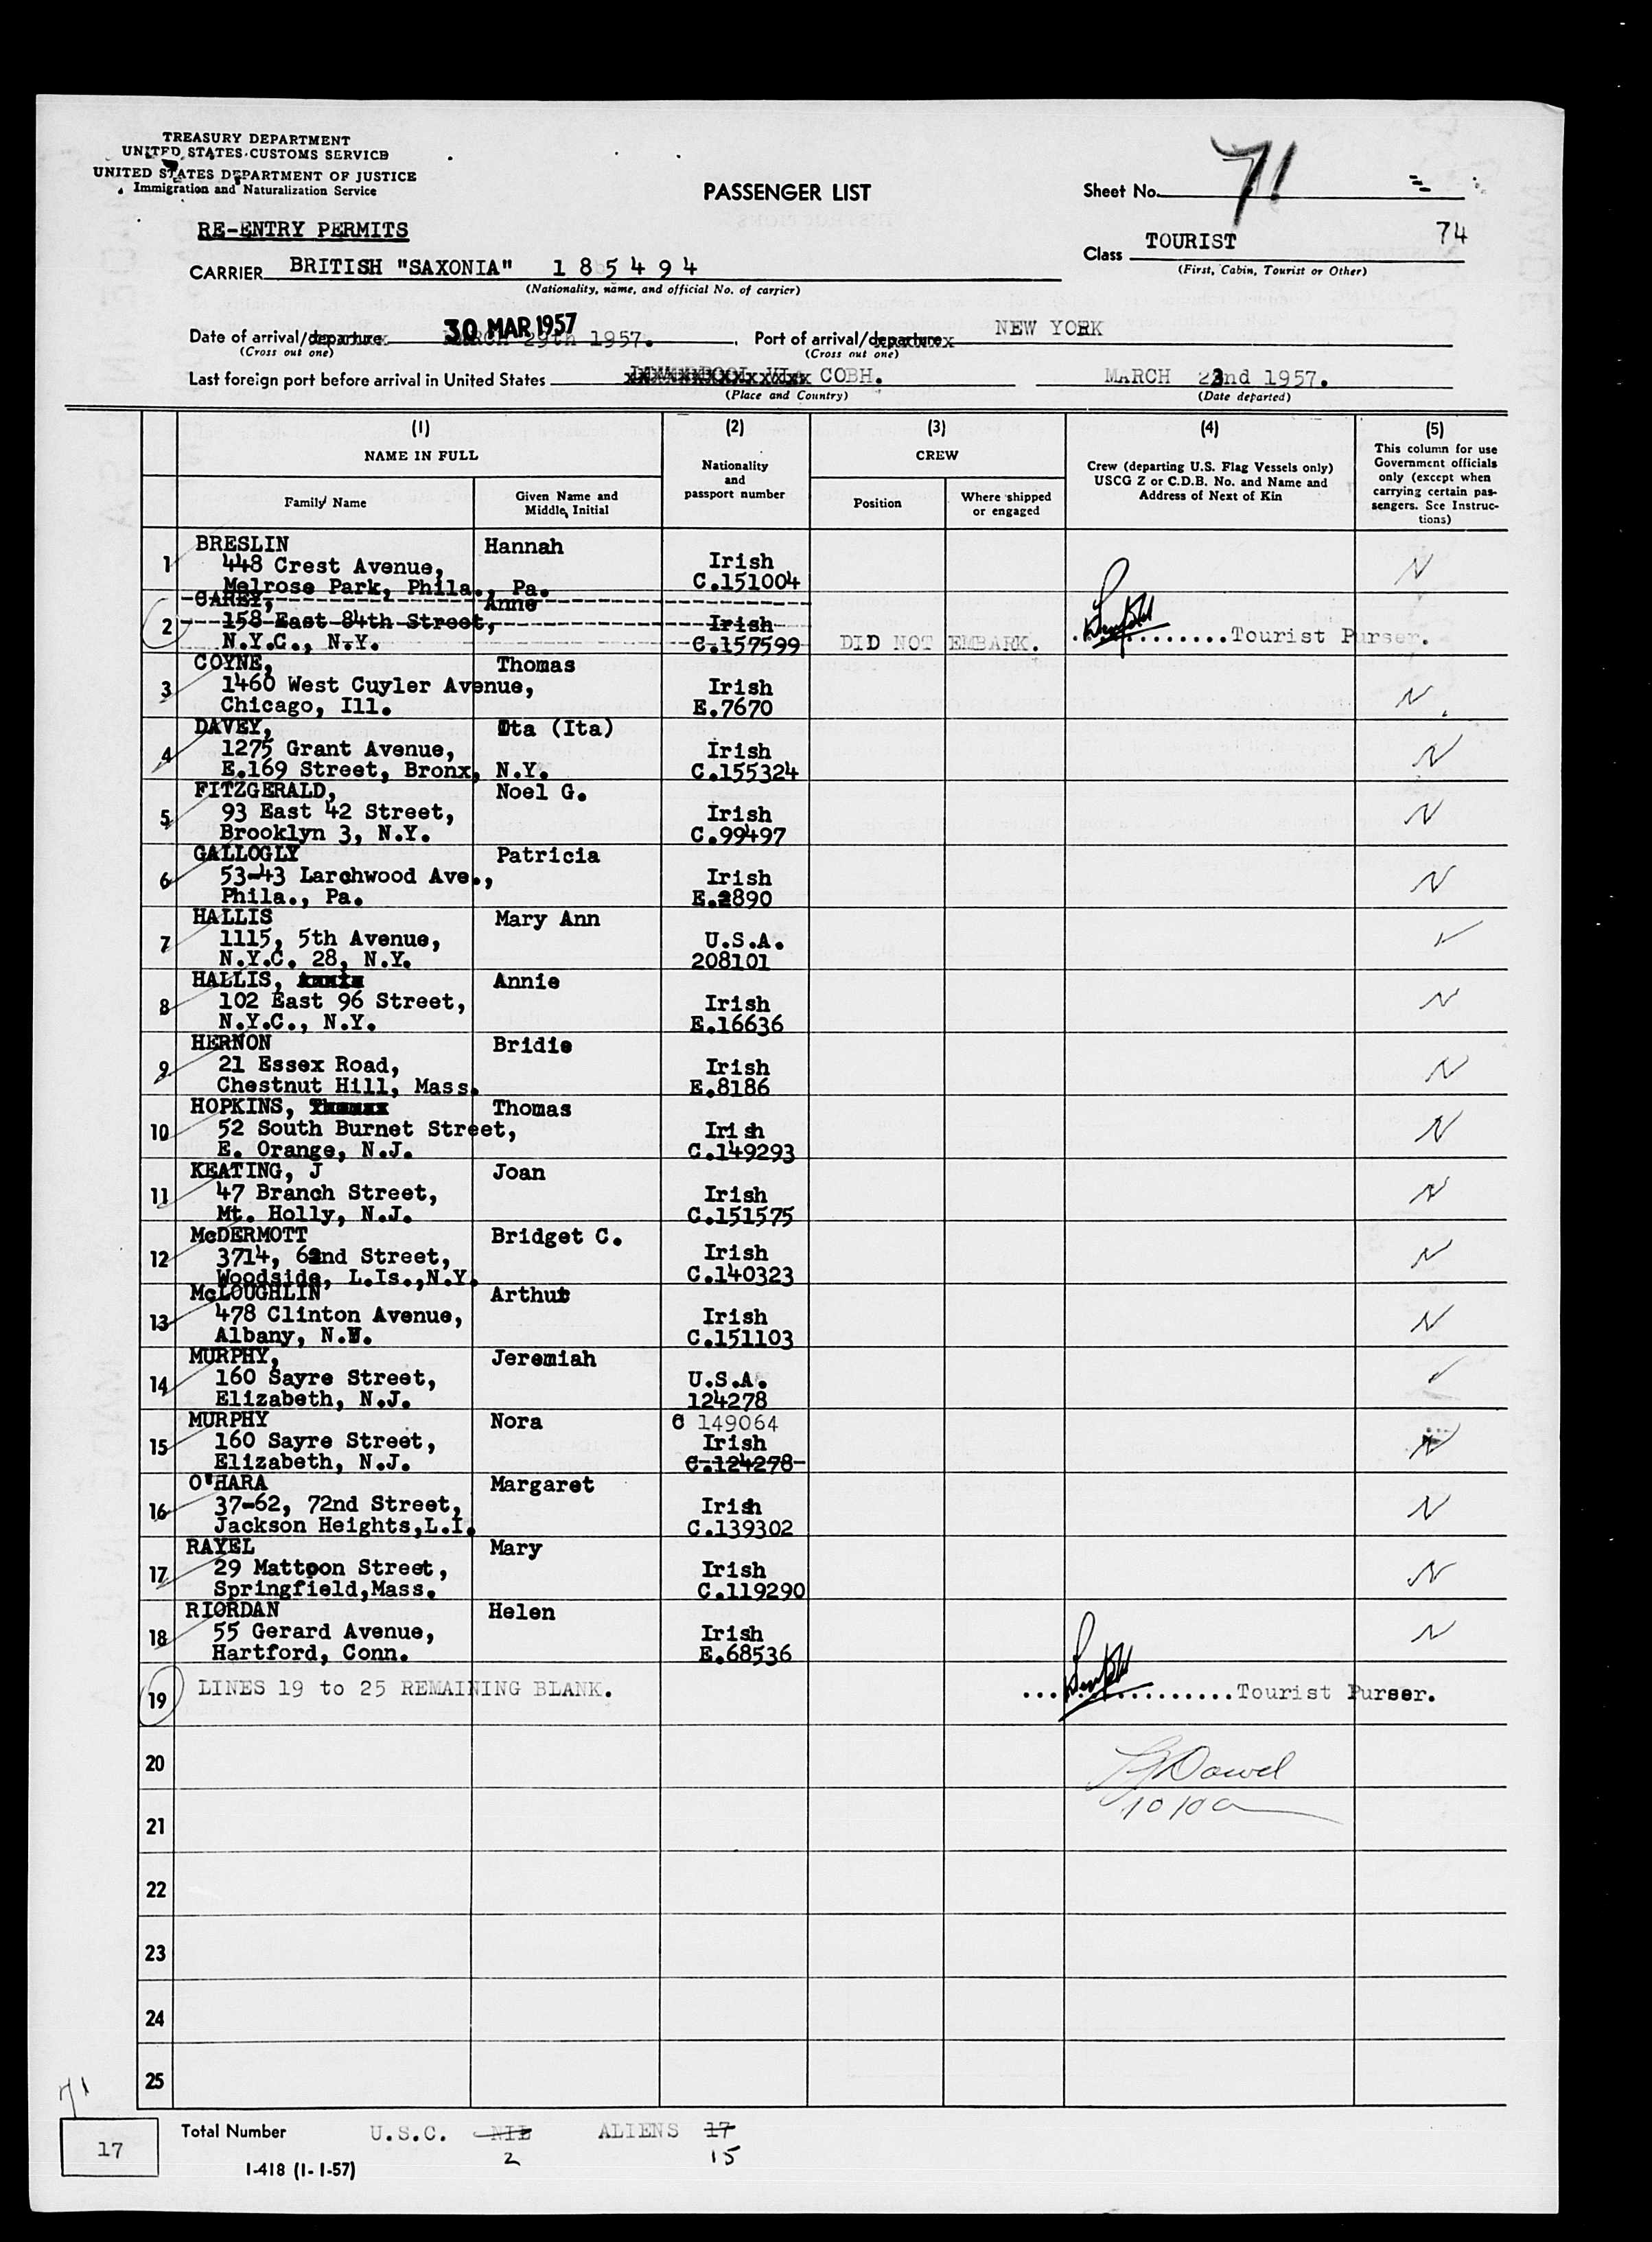 TREASURY DEPARTMENT
UNITED STATES CUSTOMS SERVICE
UNITED STATES DEPARTMENT OF JUSTICE
Immigration and Naturalization Service
PASSENGER LIST
Sheet No. 71
74
RE-ENTRY PERMITS
Class TOURIST
(First, Cabin, Tourist or Other)
CARRIER BRITISH "SAXONIA" 185494
(Nationality, name, and official No. of carrier)
Date of arrival/departure 30 MAR 1957 MARCH 29th 1957. Port of arrival/departure NEW YORK
(Cross out one) (Cross out one)
Last foreign port before arrival in United States COBH. MARCH 22nd 1957.
(Place and Country) (Date departed)
(1) (2) (3) (4) (5)
NAME IN FULL
Nationality and passport number
CREW
Crew (departing U.S. Flag Vessels only) USCG Z or C.D.B. No. and Name and Address of Next of Kin
This column for use Government officials only (except when carrying certain passengers. See Instructions)
Family Name
Given Name and Middle Initial
Position
Where shipped or engaged
1 BRESLIN Hannah
448 Crest Avenue, Irish
Melrose Park, Phila., Pa. C.151004 N
2 CAREY, Anne
158 East 84th Street, Irish
N.Y.C., N.Y. C.157599 DID NOT EMBARK. ..........Tourist Purser.
3 COYNE, Thomas
1460 West Cuyler Avenue, Irish
Chicago, Ill. E.7670 N
4 DAVEY, Uta (Ita)
1275 Grant Avenue, Irish
E.169 Street, Bronx, N.Y. C.155324 N
5 FITZGERALD, Noel G.
93 East 42 Street, Irish
Brooklyn 3, N.Y. C.99497 N
6 GALLOGLY Patricia
53-43 Larchwood Ave., Irish
Phila., Pa. E.2890 N
7 HALLIS Mary Ann
1115, 5th Avenue, U.S.A.
N.Y.C. 28, N.Y. 208101
8 HALLIS, Annie
102 East 96 Street, Irish
N.Y.C., N.Y. E.16636 N
9 HERNON Bridie
21 Essex Road, Irish
Chestnut Hill, Mass. E.8186 N
10 HOPKINS, Thomas
52 South Burnet Street, Irish
E. Orange, N.J. C.149293 N
11 KEATING, J Joan
47 Branch Street, Irish
Mt. Holly, N.J. C.151575 N
12 McDERMOTT Bridget C.
3714, 62nd Street, Irish
Woodside, L.Is.,N.Y. C.140323 N
13 McLOUGHLIN Arthur
478 Clinton Avenue, Irish
Albany, N.Y. C.151103 N
14 MURPHY, Jeremiah
160 Sayre Street, U.S.A.
Elizabeth, N.J. 124278
15 MURPHY Nora C 149064
160 Sayre Street, Irish
Elizabeth, N.J. C.124278 N
16 O'HARA Margaret
37-62, 72nd Street, Irish
Jackson Heights,L.I. C.139302 N
17 RAYEL Mary
29 Mattoon Street, Irish
Springfield,Mass. C.119290 N
18 RIORDAN Helen
55 Gerard Avenue, Irish
Hartford, Conn. E.68536 N
19 LINES 19 to 25 REMAINING BLANK. ................Tourist Purser.
20
21
22
23
24
25
71
17
Total Number U.S.C. NIL ALIENS 17
2 15
I-418 (1-1-57)